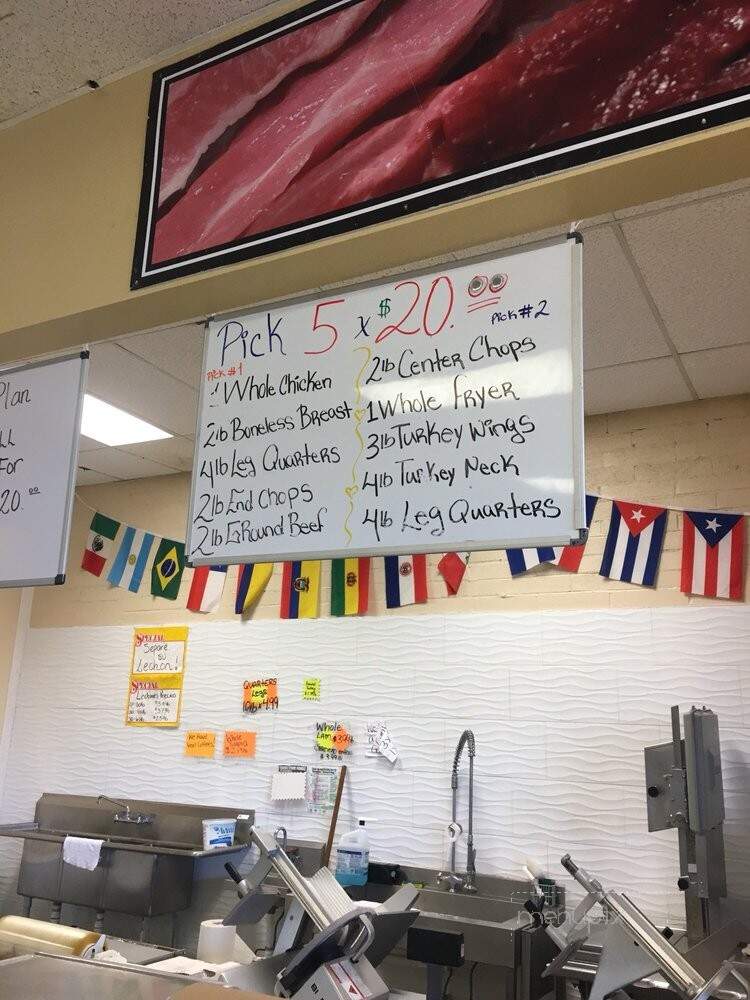 Plan
For
20.00
Pick 5 x $20.00
Pick #1
Pick #2
1 Whole Chicken
2lb Boneless Breast
4lb Leg Quarters
2lb End Chops
2lb Ground Beef
2lb Center Chops
1 Whole Fryer
3lb Turkey Wings
4lb Turkey Neck
4lb Leg Quarters
Special
Separe
su
Lechon!
Special
Quarters
Legs
10lb x 4.99
We Have
Whole
menupix